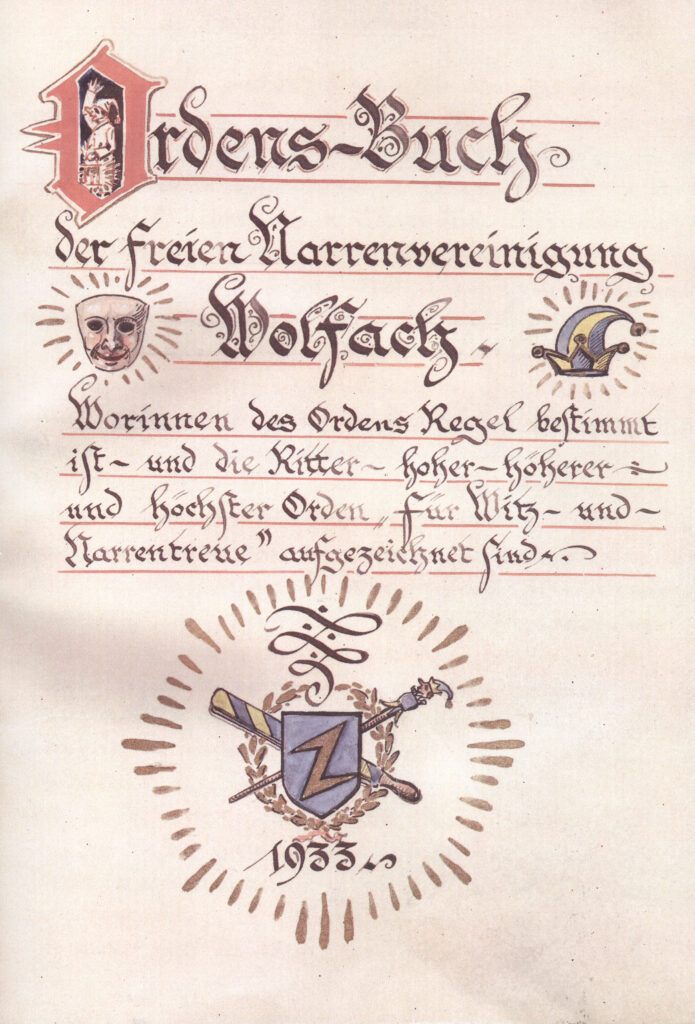 Ordens-Buch
der freien Narrenvereinigung
Wolfach.
Worinnen des Ordens Regel bestimmt
ist - und die Ritter - hoher - höherer -
und höchster Orden „für Witz - und -
Narrentreue" aufgezeichnet sind.
1933.